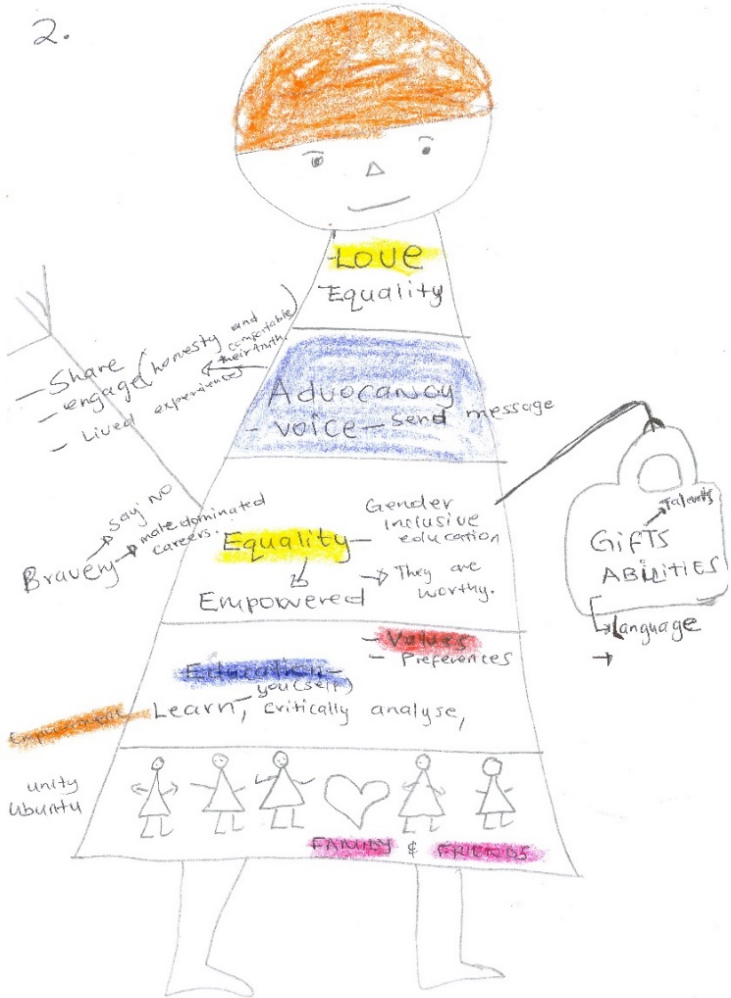 2.
Love
Equality
- Share
- engage (honesty and
comfortable
their truth.
- Lived experiences
Advocancy
- voice - send message
Bravery
say no
male dominated
careers.
Equality -
Gender
inclusive
education
Empowered
They are
worthy.
Talents
GIFTS
ABILITIES
Language
- Values
- Preferences
Education -
Learn, critically analyse,
Empowerment
unity
Ubuntu
FAMILY & FRIENDS